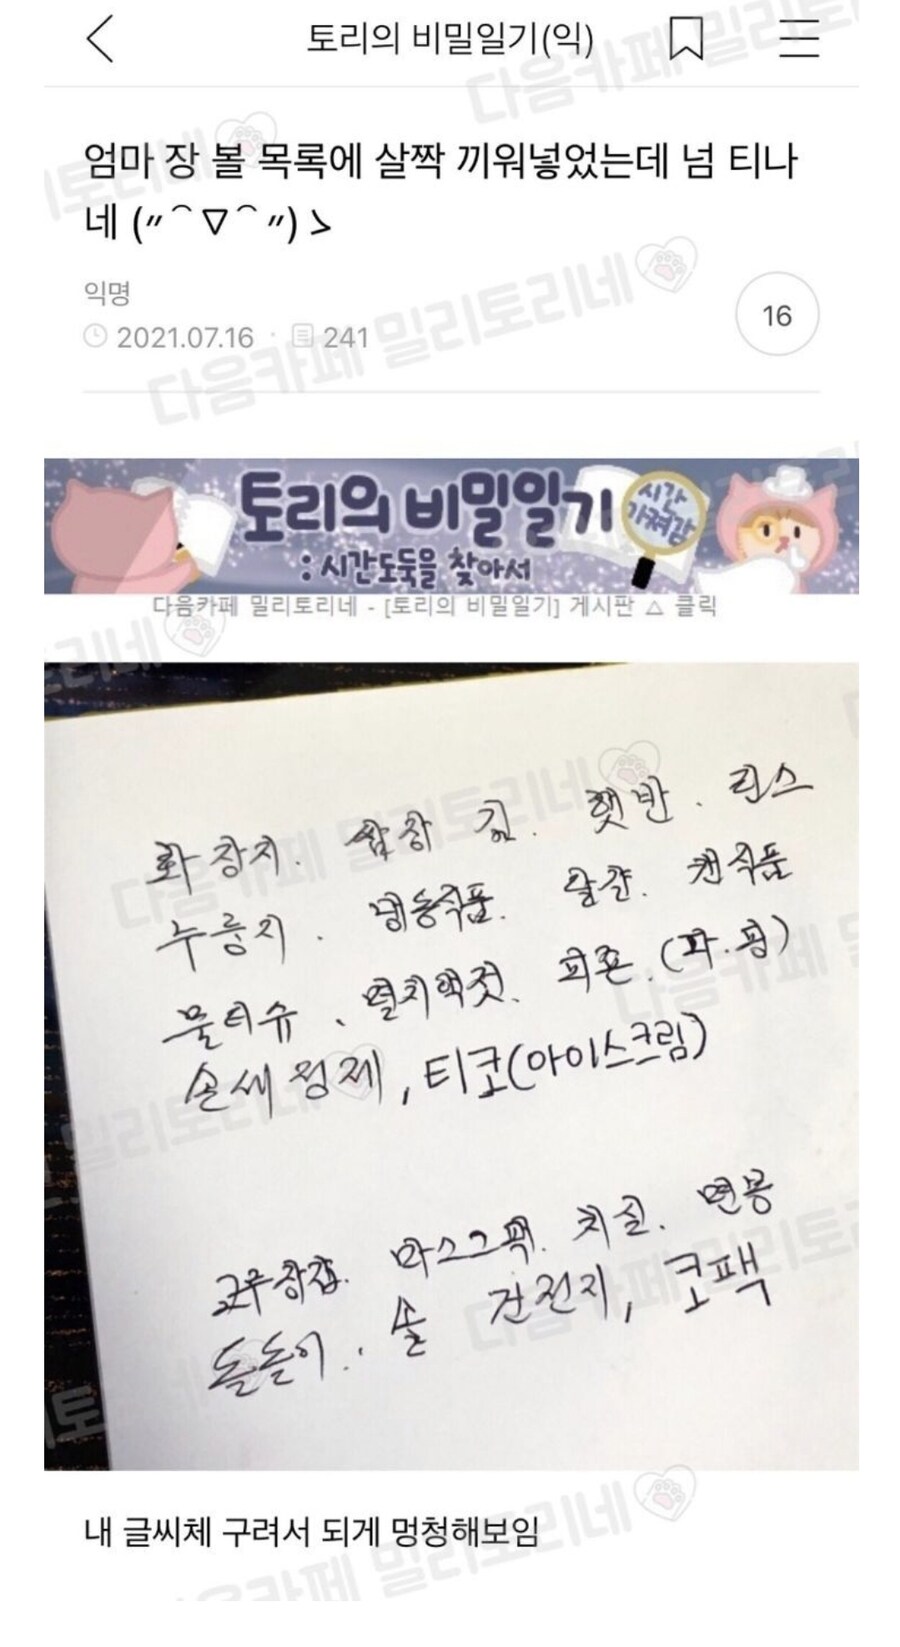 토리의 비밀일기(익)
엄마 장 볼 목록에 살짝 끼워넣었는데 넘 티나
네 (〃⌒▽⌒〃)ゝ
익명
2021.07.16 · 241
16
토리의 비밀일기
시간
가져감
: 시간도둑을 찾아서
다음카페 밀리토리네 - [토리의 비밀일기] 게시판 △ 클릭
화장지. 쌈장 김. 햇반. 린스
누룽지. 냉동식품. 달걀. 캔식품
물티슈. 멸치액젓. 피죤.(파.핑)
손세정제, 티코(아이스크림)
고무장갑. 마스크팩. 치실. 면봉
돌돌이.. 솔 건전지, 코팩
내 글씨체 구려서 되게 멍청해보임
다음카페 밀리토리네